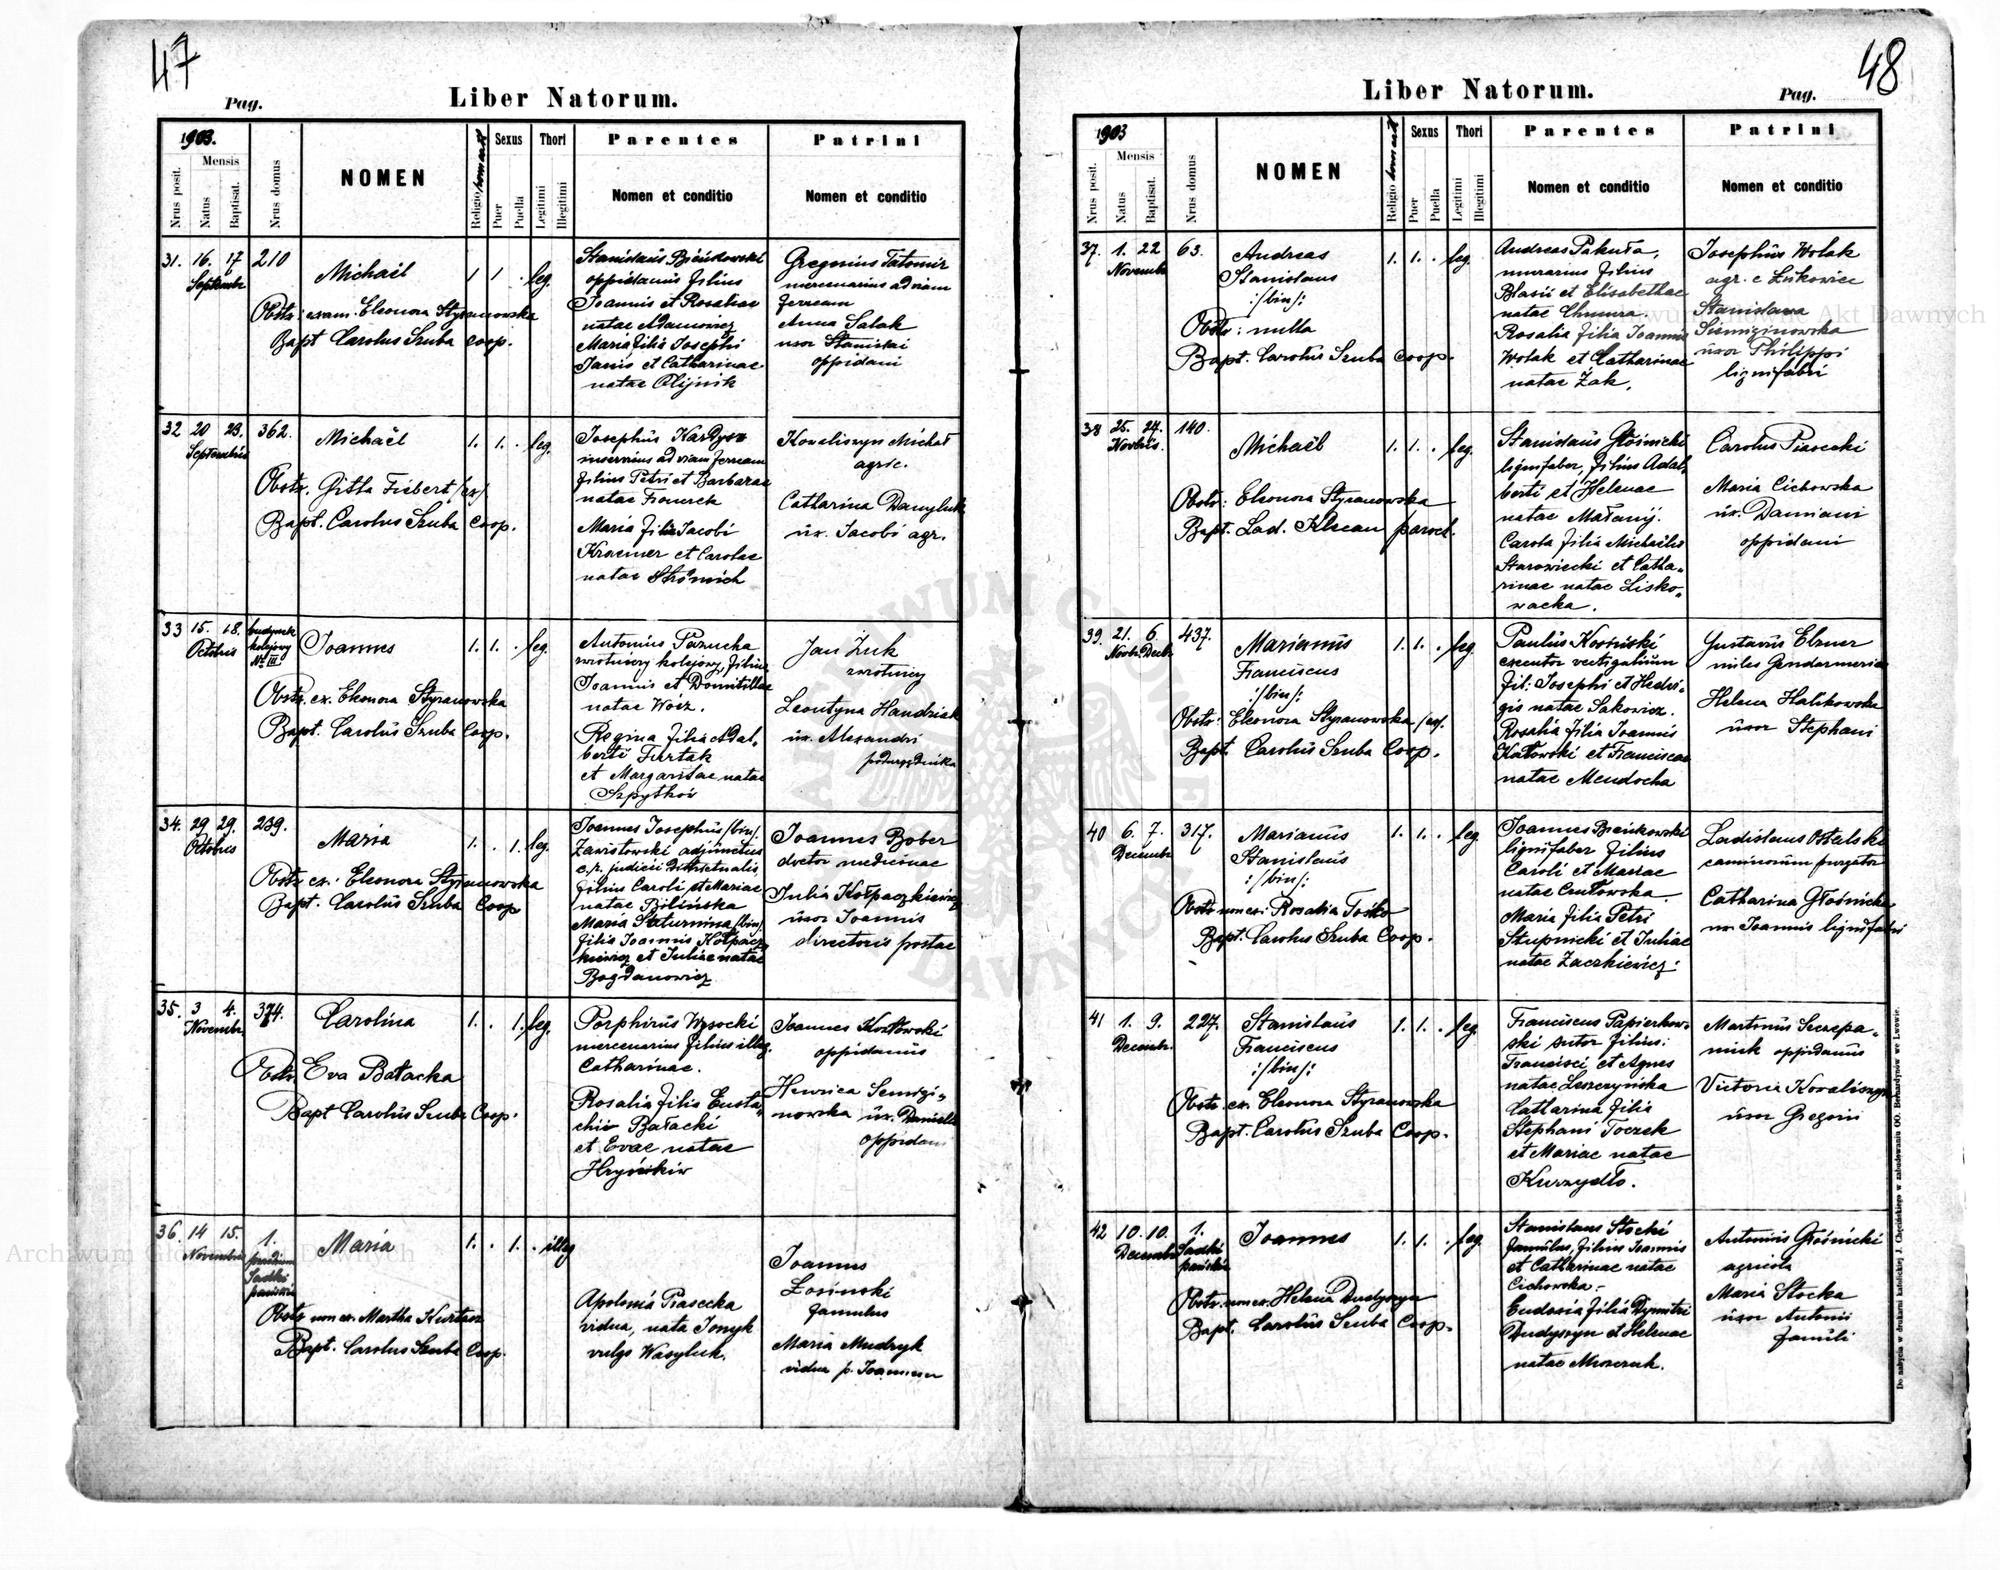 47
Pag.
Liber Natorum.
1903.
Mensis
Nrus posit.
Natus
Baptisat.
Nrus domus
NOMEN
Religio
Sexus
Puer
Puella
Thori
Legitimi
Illegitimi
Parentes
Nomen et conditio
Patrini
Nomen et conditio
31. 16. 17 210
Septembr
Michaël
1 1 . leg.
Obstr: exam. Eleonora Styranowska
Bapt Carolus Szuba coop.
Stanislaus Bieńkowski
oppidanus filius
Joannis et Rosaliae
natae Adamowicz
Maria filia Josephi
Janis et Catharinae
natae Olijnik
Gregorius Tatomir
mercenarius ad viam
ferream
Anna Salak
uxor Stanislai
oppidani
32 20 23. 362.
Septembris
Michaël
1. 1. . leg.
Obstr. Gitla Fiebert /ex/
Bapt. Carolus Szuba Coop.
Josephus Kardysz
inservius ad viam ferream
filius Petri et Barbarae
natae
Maria filia Jacobi
Kraemer et Carolae
natae
Kovaliszyn Michał
agric.
Catharina Danyluk
ux. Jacobi agr.
33 15. 18. budynek
kolejowy
Nr III
Octobris
Joannes
1. 1. . leg.
Obstr. ex. Eleonora Styranowska
Bapt. Carolus Szuba Coop.
Antonius Parucha
zwrotniczy kolejowy, filius
Joannis et Domitillae
natae Wórz.
Regina filia Adal-
berti Furtak
et Margaritae natae
Szpytków
Jan Żuk
zwrotniczy
Leontyna Handziak
ux. Alexandri
podurzędnika
34. 29 29. 239.
Octobris
Maria
1. . 1. leg.
Obstr ex: Eleonora Styranowska
Bapt. Carolus Szuba Coop
Joannes Josephus /bin/.
Zawistowski adjunctus
c.r. judicii districtualis
filius Caroli et Mariae
natae Bilińska
Maria Saturnina /bin/.
filia Joannis Kołpacz-
kiewicz et Juliae natae
Bogdanowicz
Joannes Bober
doctor medicinae
Julia Kołpaczkiewicz
uxor Joannis
directoris postae
35. 3 4. 374.
Novembr.
Carolina
1. . 1. leg.
Obstr. Eva Bałacka
Bapt Carolus Szuba Coop.
Porphirus Wysocki
mercenarius filius illeg.
Catharinae.
Rosalia filia Eusta-
chii Bałacki
et Evae natae
Hryńków
Joannes Kozłowski
oppidanus
Henrica Semizi-
nowska ux. Danielis
oppidani
36. 14 15. 1.
Novembris
praedium
Sadki
pańskie
Maria
1. . 1. . illeg
Obstr non ex. Martha Kurtasz
Bapt. Carolus Szuba Coop.
Apolonia Piasecka
vidua, nata Jonyk
vulgo Wasyluk.
Joannes
Łosinski
famulus
Maria Mudryk
vidua p. Joannem
48
Liber Natorum.
Pag.
1903
Mensis
Nrus posit.
Natus
Baptisat.
Nrus domus
NOMEN
Religio
Sexus
Puer
Puella
Thori
Legitimi
Illegitimi
Parentes
Nomen et conditio
Patrini
Nomen et conditio
37. 1. 22 63.
Novembr
Andreas
Stanislaus
:/bin/:
1. 1. . leg.
Obstr: nulla
Bapt. Carolus Szuba Coop.
Andreas Pakuła,
murarius filius
Blasii et Elisabethae
natae Chmura.
Rosalia filia Joannis
Wolak et Catharinae
natae Żak.
Josephus Wolak
agr. e Liskowiec
Stanislawa
Siemiginowska
uxor Philippi
lignifabri
38 25. 27. 140.
Novbris.
Michaël
1. 1. . leg.
Obstr: Eleonora Styranowska
Bapt. Lad. Klecan paroch.
Stanislaus Głośnicki
lignifaber, filius Adal-
berti et Helenae
natae Małanij.
Carola filia Michaëlis
Starowiecki et Catha-
rinae natae Lisko-
wacka.
Carolus Piasecki
Maria Cichowska
ux. Damiani
oppidani
39. 21. 6. 437.
Novbr. Decbr.
Marianus
Franciscus
:/bin/:
1. 1. . leg.
Obstr: Eleonora Styranowska /ex/.
Bapt. Carolus Szuba Coop.
Paulus Kosiński
executor vectigalium
fil: Josephi et Hedvi-
gis natae Sakowicz.
Rosalia filia Joannis
Katowski et Franciscae
natae Mendocha
Gustavus Elzner
miles Gendarmeriae
Helena Halikowska
uxor Stephani
40 6. 7. 317.
Decembr
Marianus
Stanislaus
:/bin/:
1. 1. . leg.
Obstr non ex: Rosalia Tośko
Bapt. Carolus Szuba Coop.
Joannes Bieńkowski
lignifaber filius
Caroli et Mariae
natae Czułowska.
Maria filia Petri
Stupnicki et Juliae
natae Zaczkiewicz.
Ladislaus Ostalski
caminorum purgator
Catharina Głośnicka
ux. Joannis lignifabri
41 1. 9. 227.
Decembr.
Stanislaus
Franciscus
:/bin/:
1. 1. . leg.
Obstr. ex. Eleonora Styranowska
Bapt. Carolus Szuba Coop.
Franciscus Papierkow-
ski sutor filius
Francisci et Agnes
natae Leszczyńska
Catharina filia
Stephani Toczek
et Mariae natae
Kurzydło.
Martinus Szczepa-
niuk oppidanus
Victoria Kovaliszyn
uxor Gregorii
42 10. 10. 1.
Decembr
Sadki
pańskie
Joannes
1. 1. . leg.
Obstr. non ex. Helena Dudyszyn
Bapt. Carolus Szuba Coop.
Stanislaus Stocki
famulus, filius Joannis
et Catharinae natae
Cichowska.-
Eudosia filia Dymitri
Dudyszyn et Helenae
natae Mroczuk.
Antonius Głośnicki
agricola
Maria Stocka
uxor Antonii
famuli
Do nabycia w drukarni katolickiej J. Chęcińskiego w zabudowaniu OO. Bernardynów we Lwowie.
Archiwum Główne Akt Dawnych
Archiwum Główne Akt Dawnych
ARCHIWUM GŁÓWNE AKT DAWNYCH